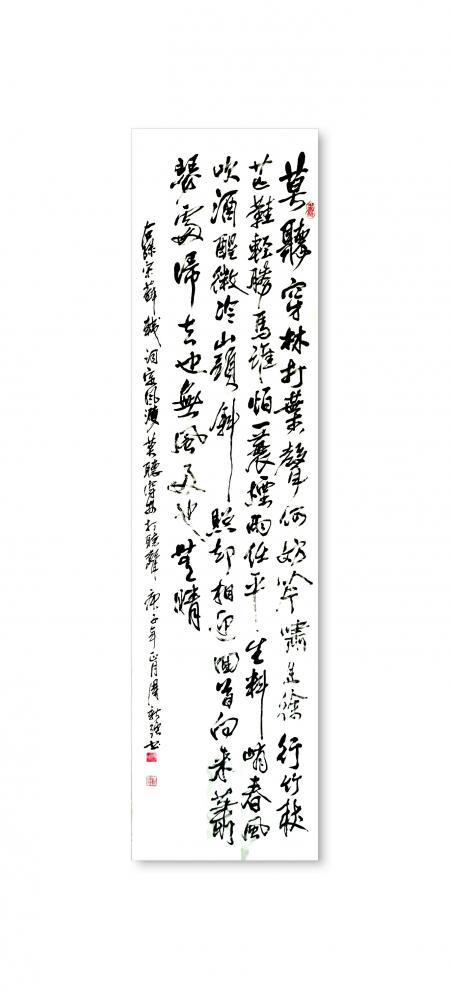 莫聽穿林打葉聲何妨吟嘯且徐行竹杖
芒鞋輕勝馬誰怕一蓑煙雨任平生料峭春風
吹酒醒微冷山頭斜照却相迎回首向來蕭
瑟處歸去也無風雨也無晴
宋蘇軾詞定風波莫聽穿林打葉聲庚子年正月書